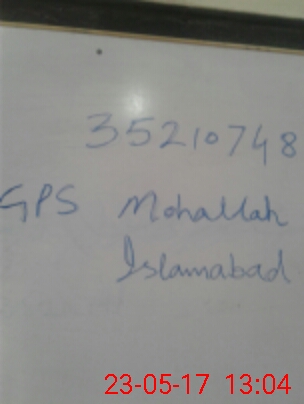 35210748
GPS Mohallah
Islamabad
23-05-17 13:04